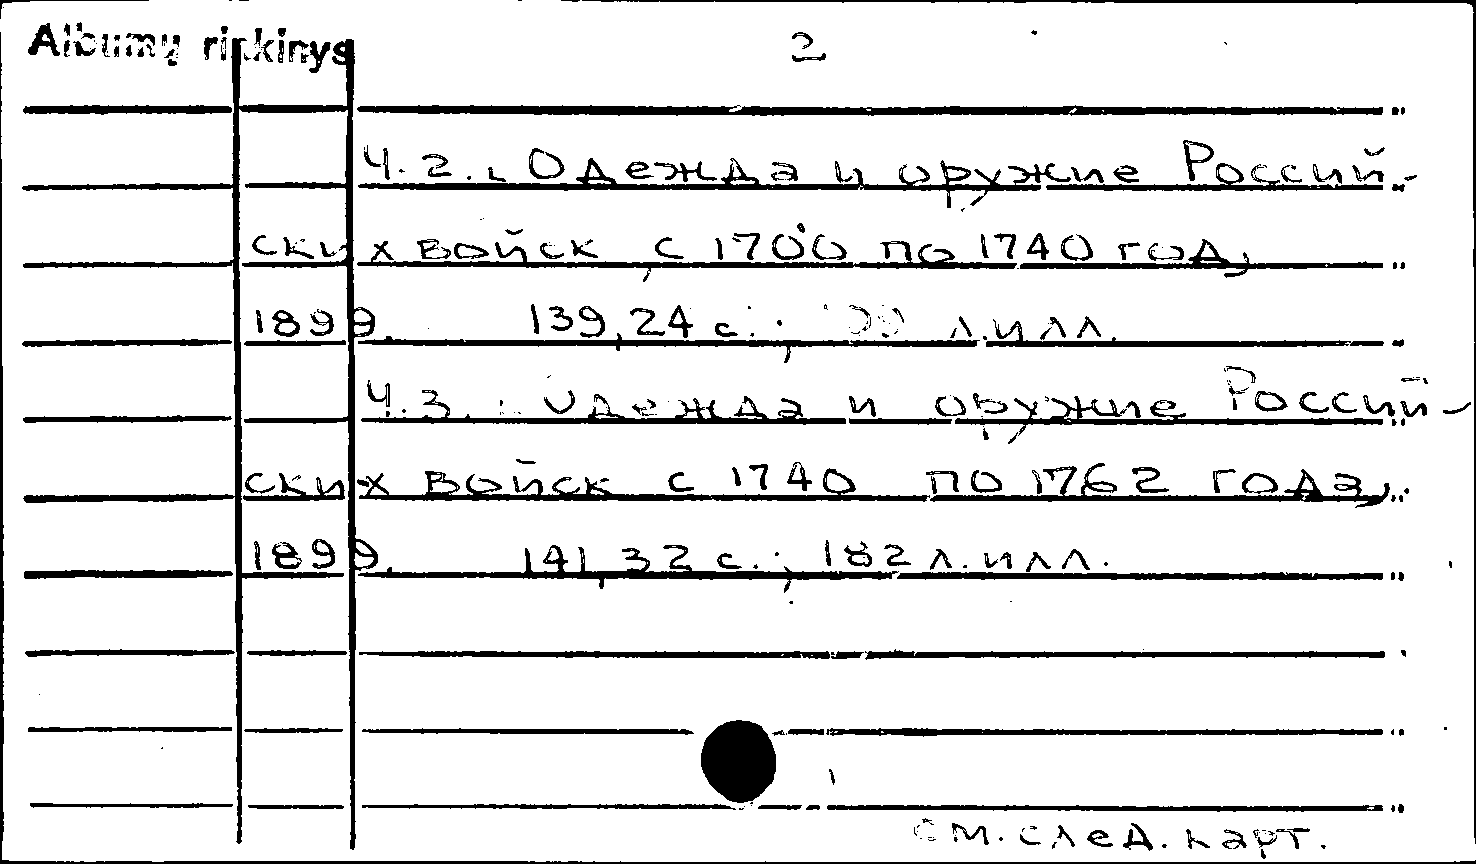 Albumų rinkinys
2
Ч.2.: Одежда и оружие Россий-
ских войск, с 1700 по 1740 год,
1899. 139,24 с.; л.илл.
Ч.3.: Одежда и оружие Россий-
ских войск с 1740 по 1762 года,
1899. 141,32 с.; 182 л.илл.
см.след.карт.